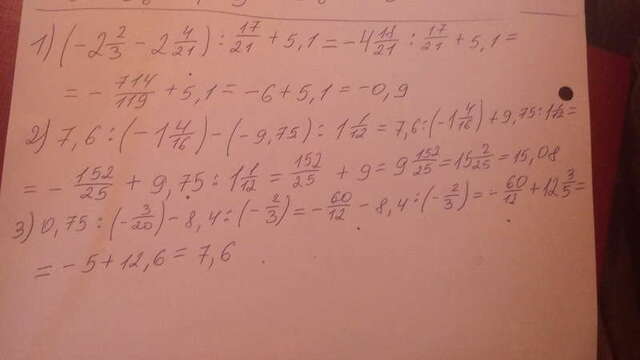 1) (-2 2/3 - 2 4/21) : 17/21 + 5,1 = -4 18/21 : 17/21 + 5,1 =
= - 714/119 + 5,1 = -6 + 5,1 = -0,9
2) 7,6 : (-1 4/16) - (-9,75) : 1 1/12 = 7,6 : (-1 4/16) + 9,75 : 1 1/12 =
= - 152/25 + 9,75 : 1 1/12 = 152/25 + 9 = 9 152/25 = 15 2/25 = 15,08
3) 0,75 : (- 3/20) - 8,4 : (- 2/3) = - 60/12 - 8,4 : (- 2/3) = - 60/12 + 12 3/5 =
= -5 + 12,6 = 7,6